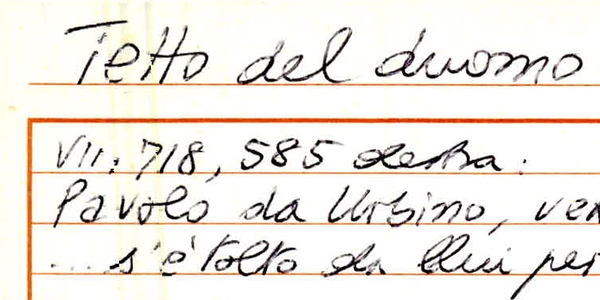 Tetto del duomo
VII: 718, 585 destra:
Pavolo da Urbino, ven
... s'è tolto da llui per